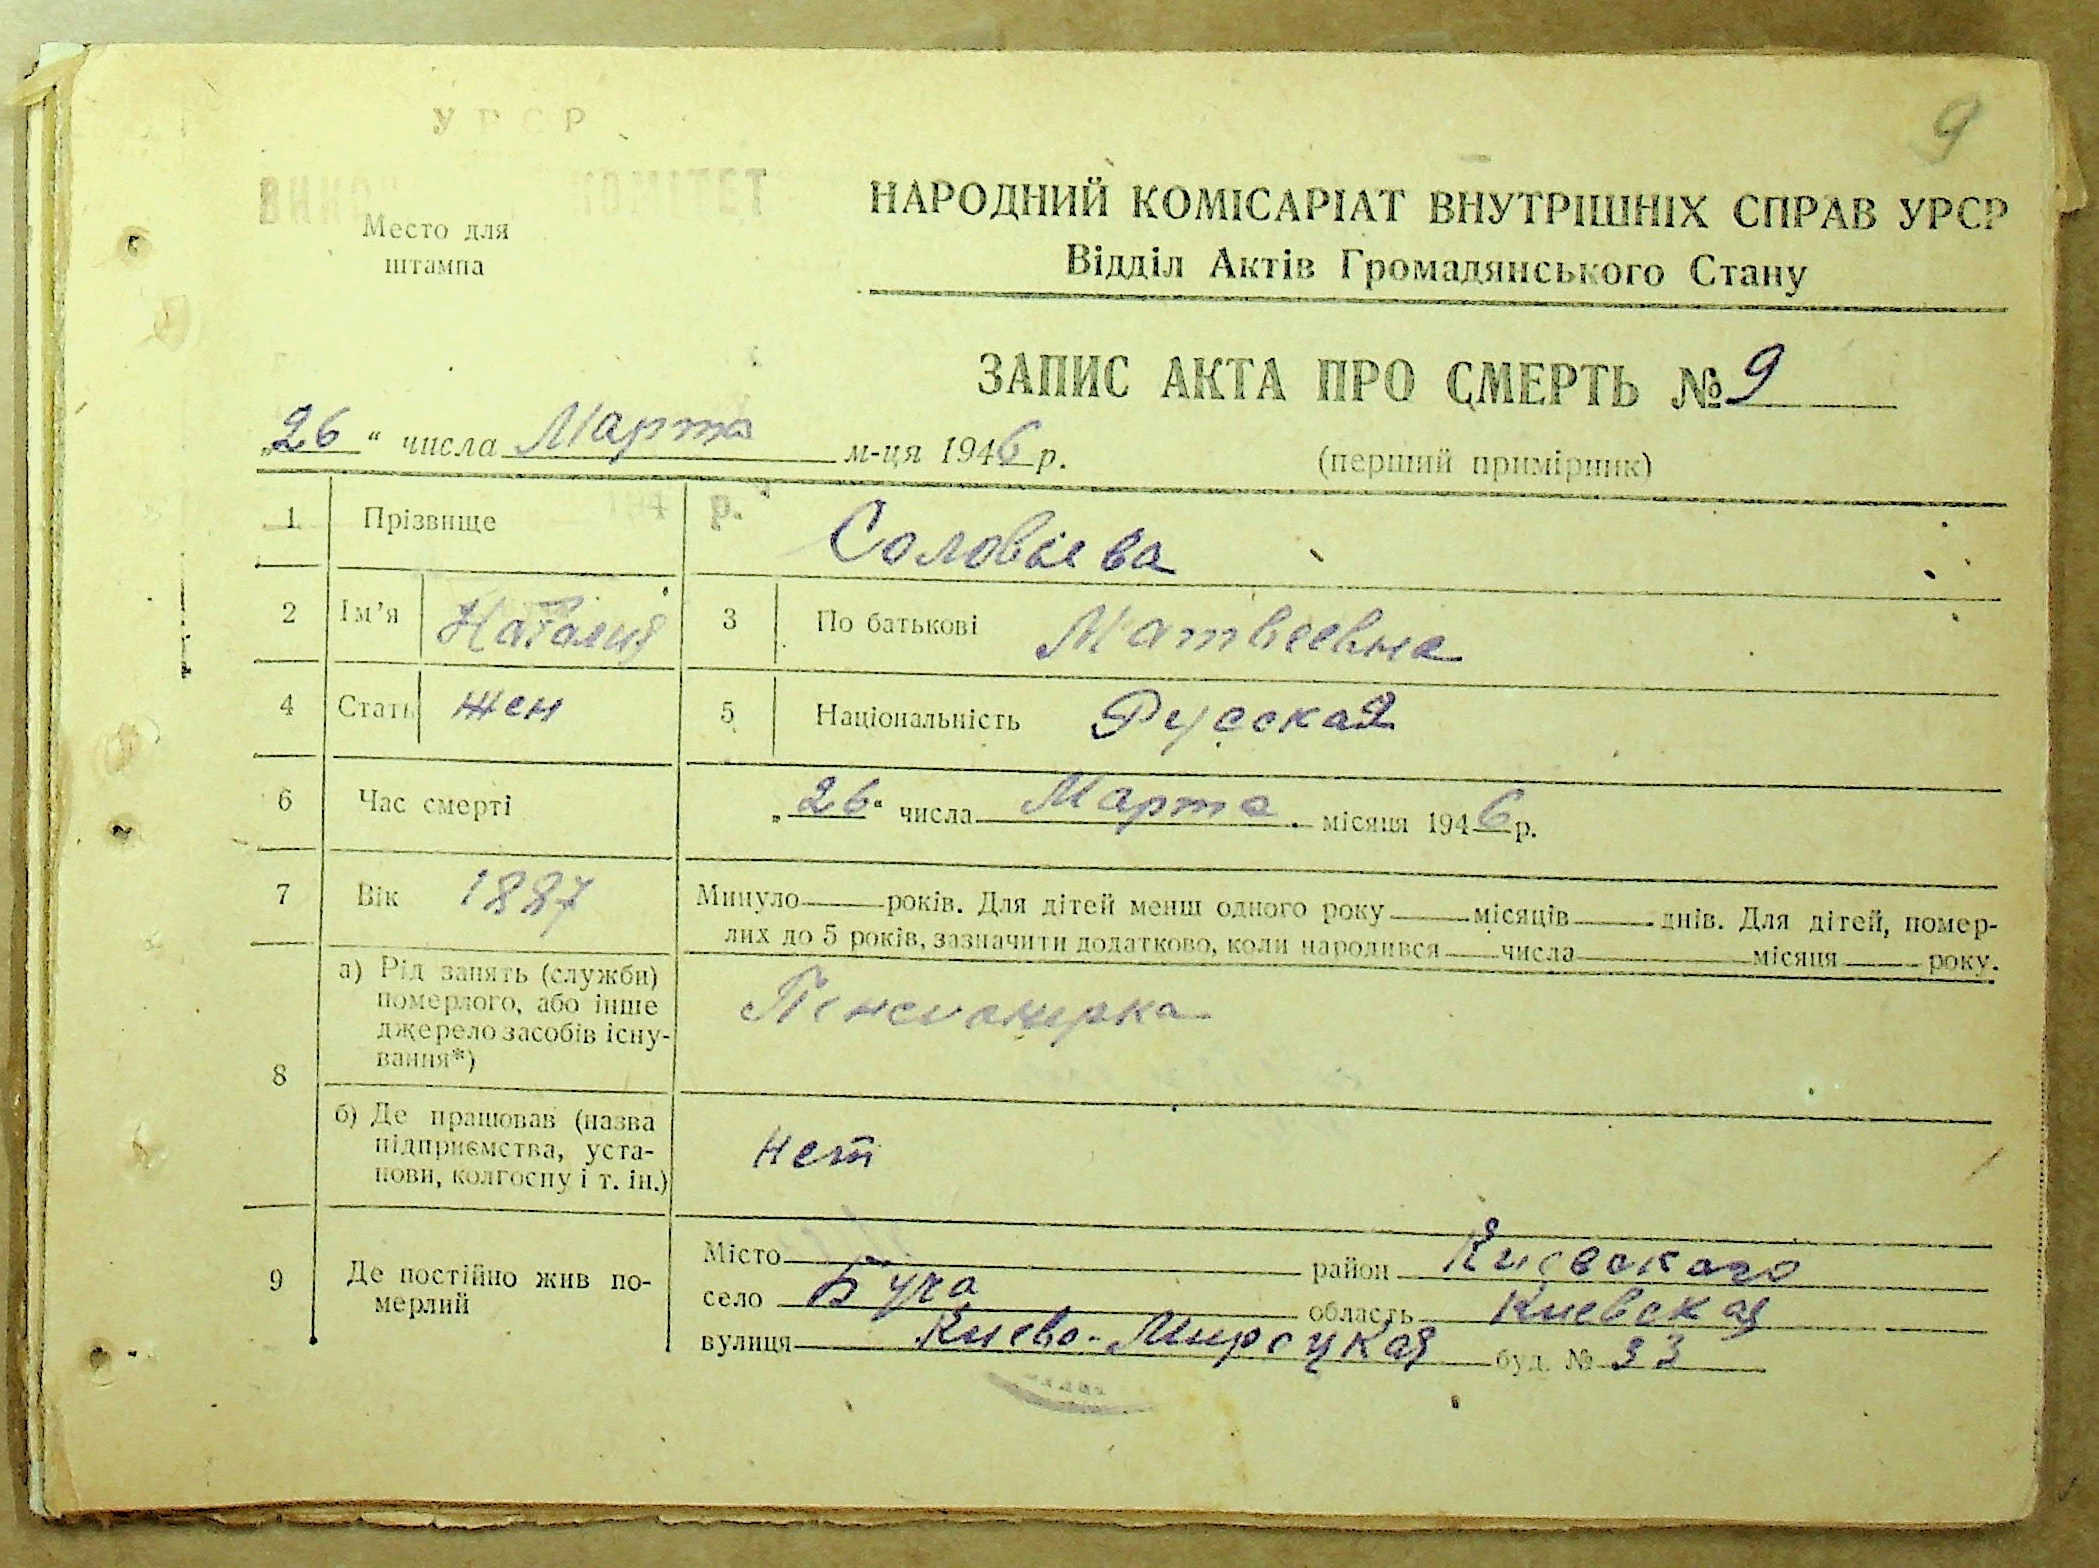 9
УРСР
КОМІТЕТ
Место для
штампа
НАРОДНИЙ КОМІСАРІАТ ВНУТРІШНІХ СПРАВ УРСР
Відділ Актів Громадянського Стану
ЗАПИС АКТА ПРО СМЕРТЬ № 9
„26“ числа Марта м-ця 1946 р.
(перший примірник)
194 р.
1 Прізвище Соловьева
2 Ім’я Наталия 3 По батькові Матвеевна
4 Стать жен 5 Національність Русская
6 Час смерті „26“ числа Марта місяця 1946 р.
7 Вік 1887 Минуло ____ років. Для дітей менш одного року ____ місяців ____ днів. Для дітей, помер-
лих до 5 років, зазначити додатково, коли народився ____ числа ____ місяця ____ року.
8 а) Рід занять (служби)
померлого, або інше
джерело засобів існу-
вання*)
Пенсионерка
б) Де працював (назва
підприємства, уста-
нови, колгоспу і т. ін.)
нет
9 Де постійно жив по-
мерлий
Місто ____ район Киевского
село Буча область Киевская
вулиця Киево-Мироцкая буд. № 33